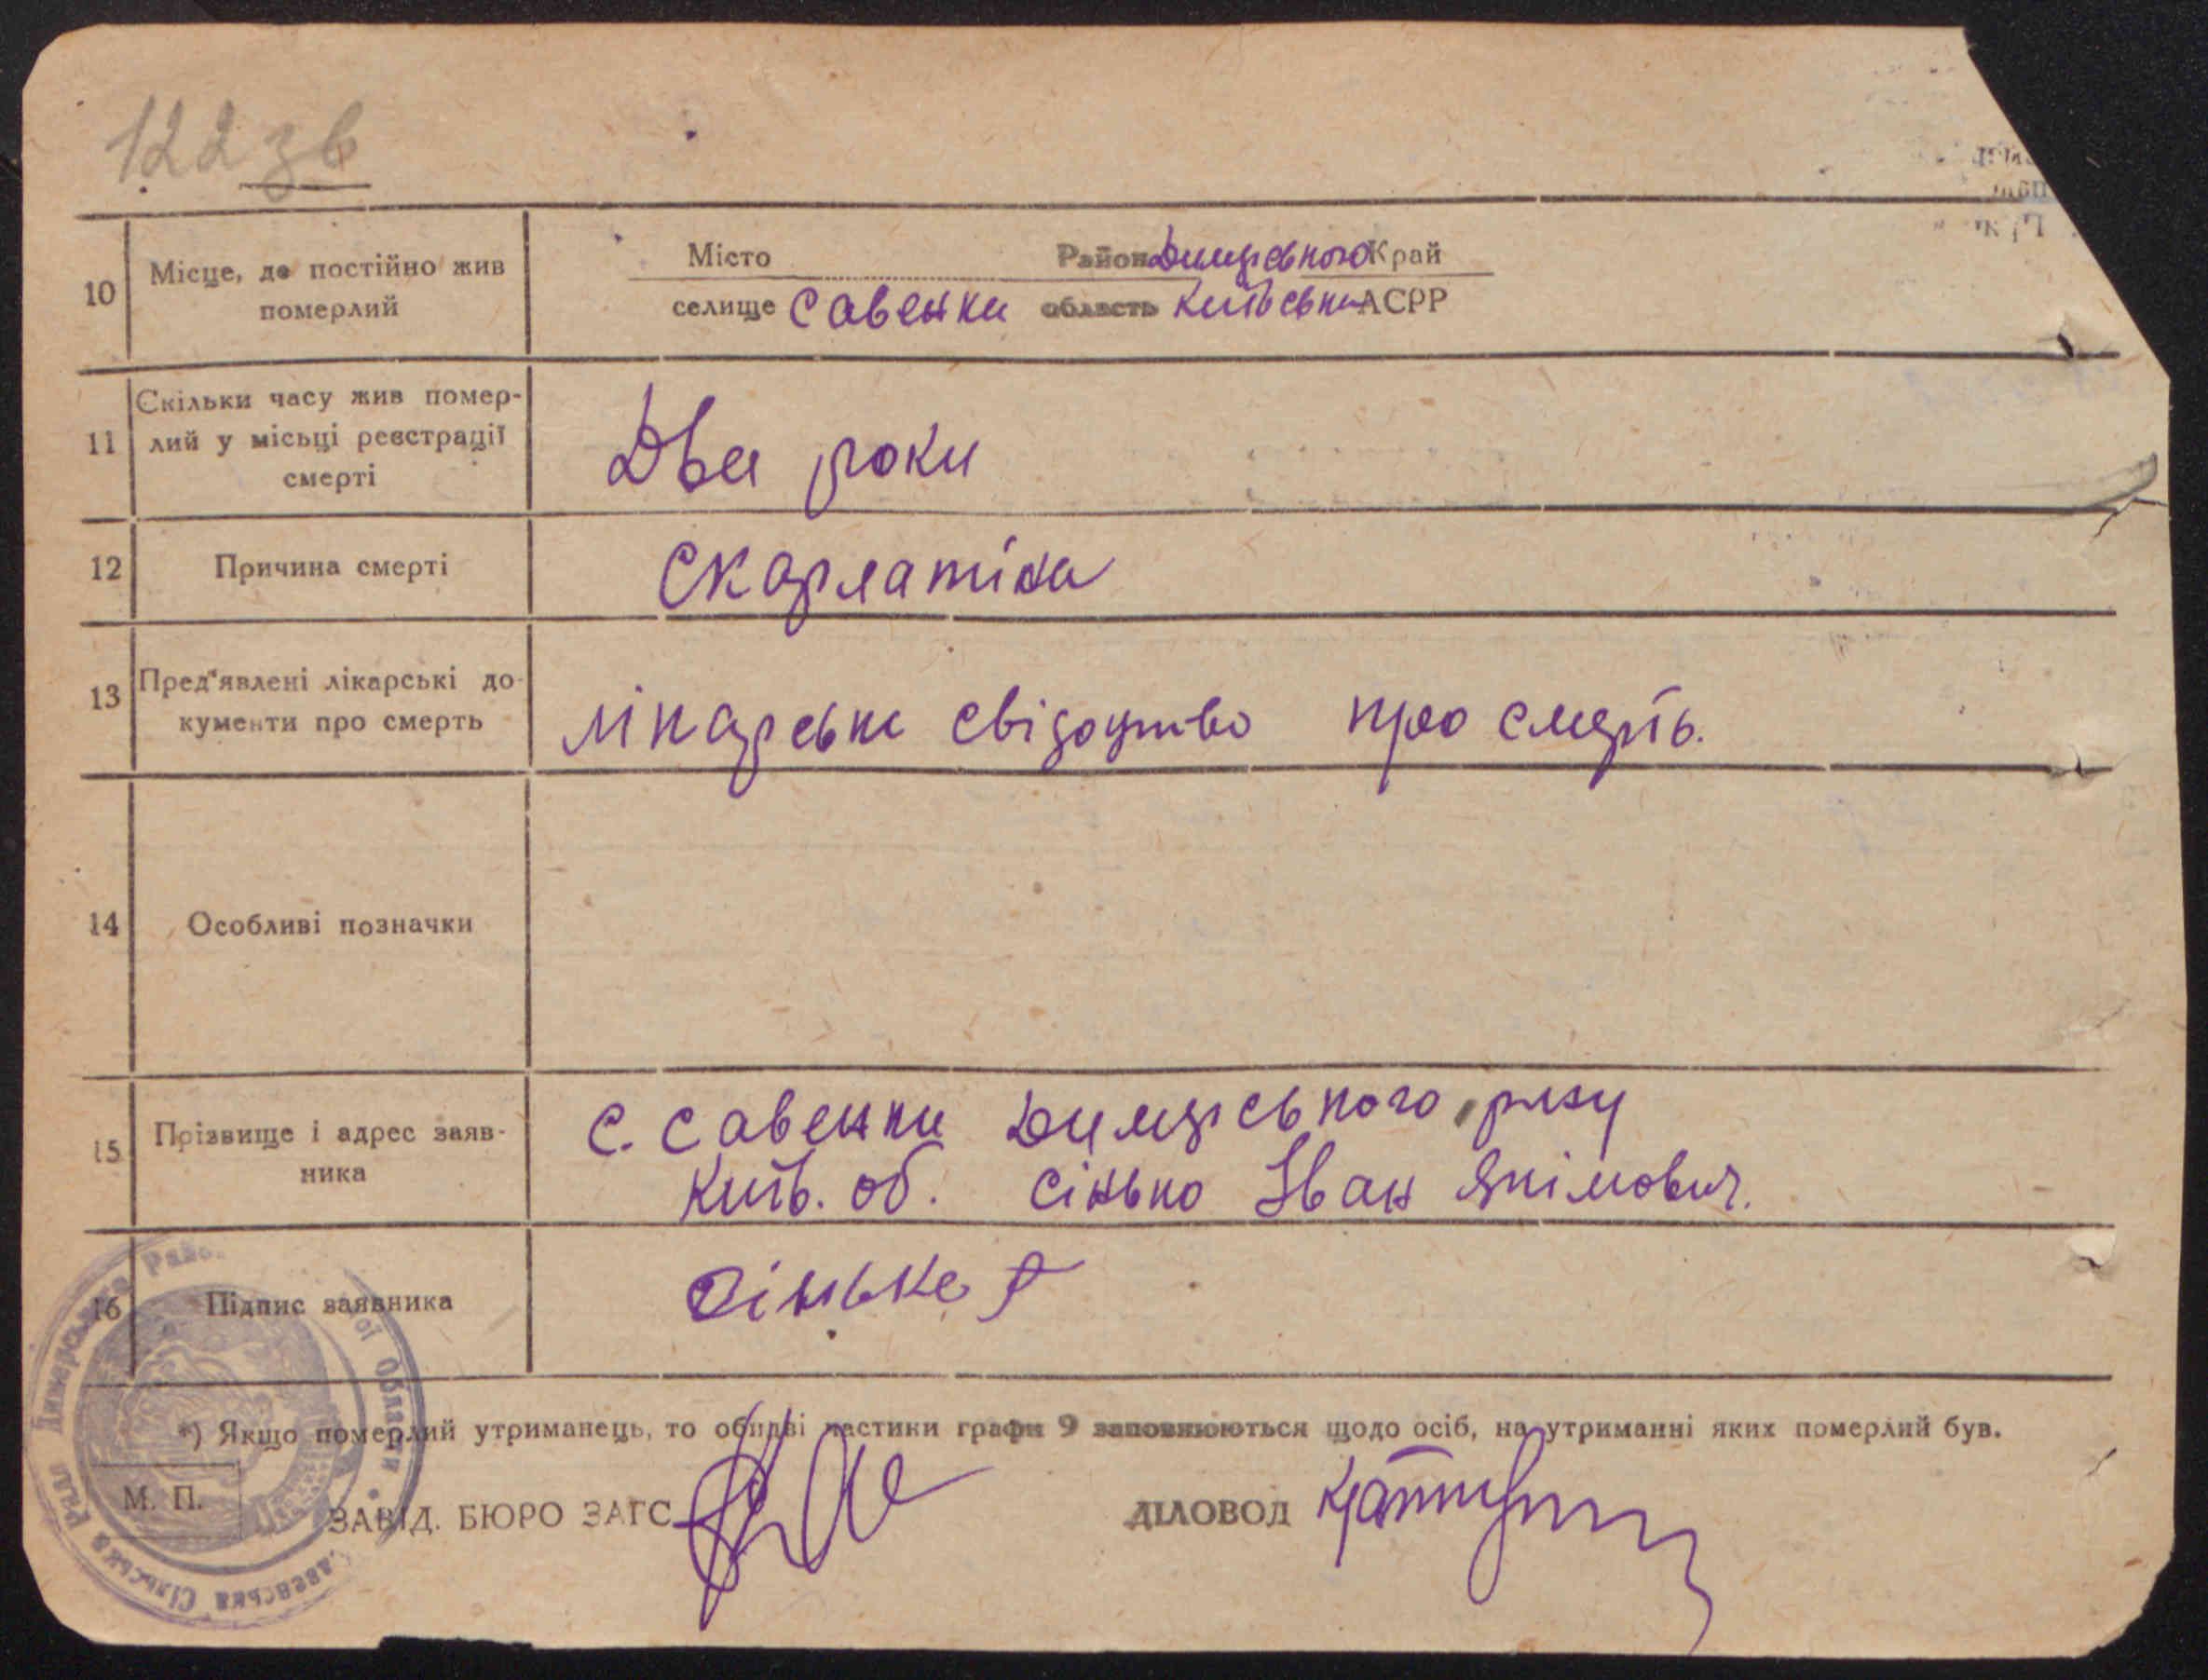 122 зв
10 Місце, де постійно жив померлий
Місто Район Димерського Край
селище Савенки область Київська АСРР
11 Скільки часу жив помер-
лий у місьці реєстрації
смерті
Два роки
12 Причина смерті
Скарлатіна
13 Пред'явлені лікарські до-
кументи про смерть
Лікарське свідоцтво про смерть.
14 Особливі позначки
15 Прізвище і адрес заяв-
ника
с. Савенки Димерського р-ну
Київ. об. Сінько Іван Якімович.
16 Підпис заявника
Сінько
*) Якщо померлий утриманець, то обидві частини графи 9 заповнюються щодо осіб, на утриманні яких померлий був.
М. П.
ЗАВІД. БЮРО ЗАГС
ДІЛОВОД
Димерська Сільська Рада Області